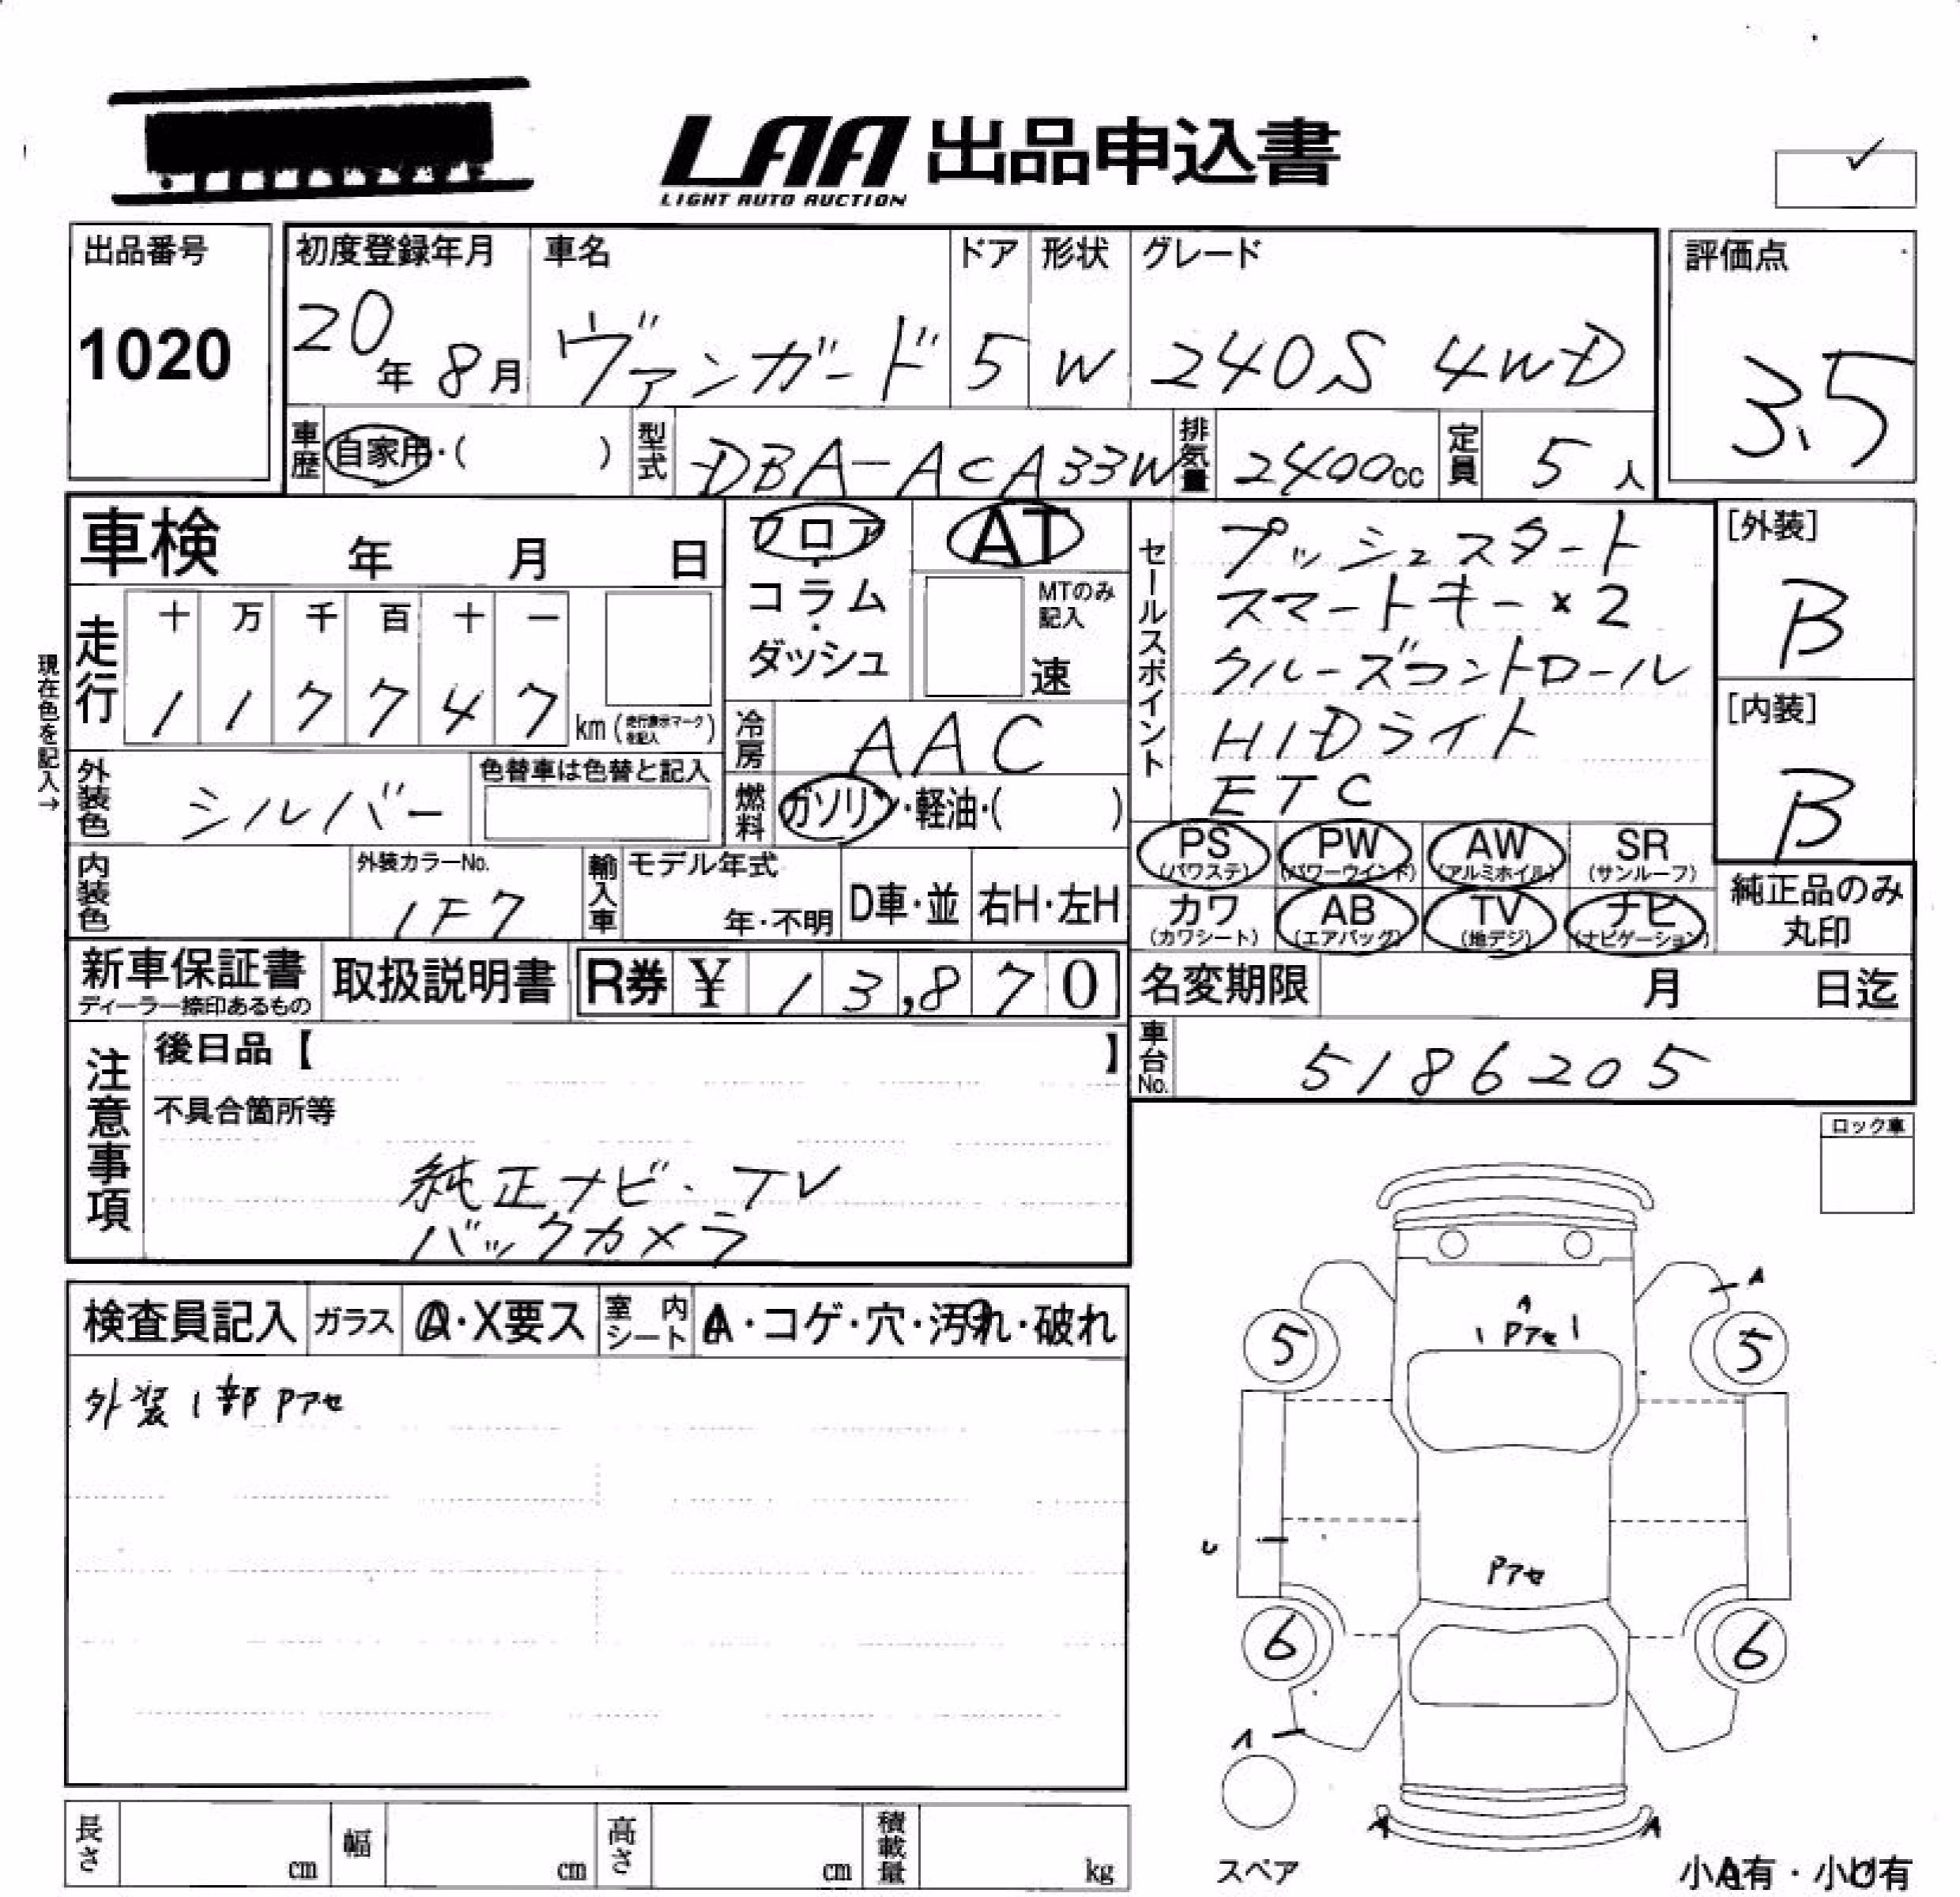 LAA 出品申込書
LIGHT AUTO AUCTION
出品番号
1020
初度登録年月
20年 8月
車名
ヴァンガード
ドア
5
形状
W
グレード
240S 4WD
評価点
3.5
車歴
自家用・( )
型式
DBA-ACA33W
排気量
2400cc
定員
5人
車検 年 月 日
フロア・コラム・ダッシュ
AT
MTのみ記入
速
現在色を記入→
走行
十 万 千 百 十 一
1 1 7 7 4 7
km (走行表示マークを記入)
冷房
AAC
外装色
シルバー
色替車は色替と記入
燃料
ガソリン・軽油・( )
内装色
外装カラーNo.
1F7
輸入車
モデル年式
年・不明
D車・並
右H・左H
セールスポイント
プッシュスタート
スマートキー×2
クルーズコントロール
HIDライト
ETC
[外装]
B
[内装]
B
PS (パワステ)
PW (パワーウインド)
AW (アルミホイル)
SR (サンルーフ)
カワ (カワシート)
AB (エアバッグ)
TV (地デジ)
ナビ (ナビゲーション)
純正品のみ
丸印
新車保証書
ディーラー捺印あるもの
取扱説明書
R券 ¥ 13,870
名変期限 月 日迄
車台No.
5186205
注意事項
後日品【 】
不具合箇所等
純正ナビ・TV
バックカメラ
ロック車
検査員記入
ガラス
A・X要ス
室内シート
A・コゲ・穴・汚れ・破れ
外装1部Pアセ
A
A
Pアセ
5
5
U
Pアセ
6
6
A
A
A
スペア
小A有・小U有
長さ cm
幅 cm
高さ cm
積載量 kg